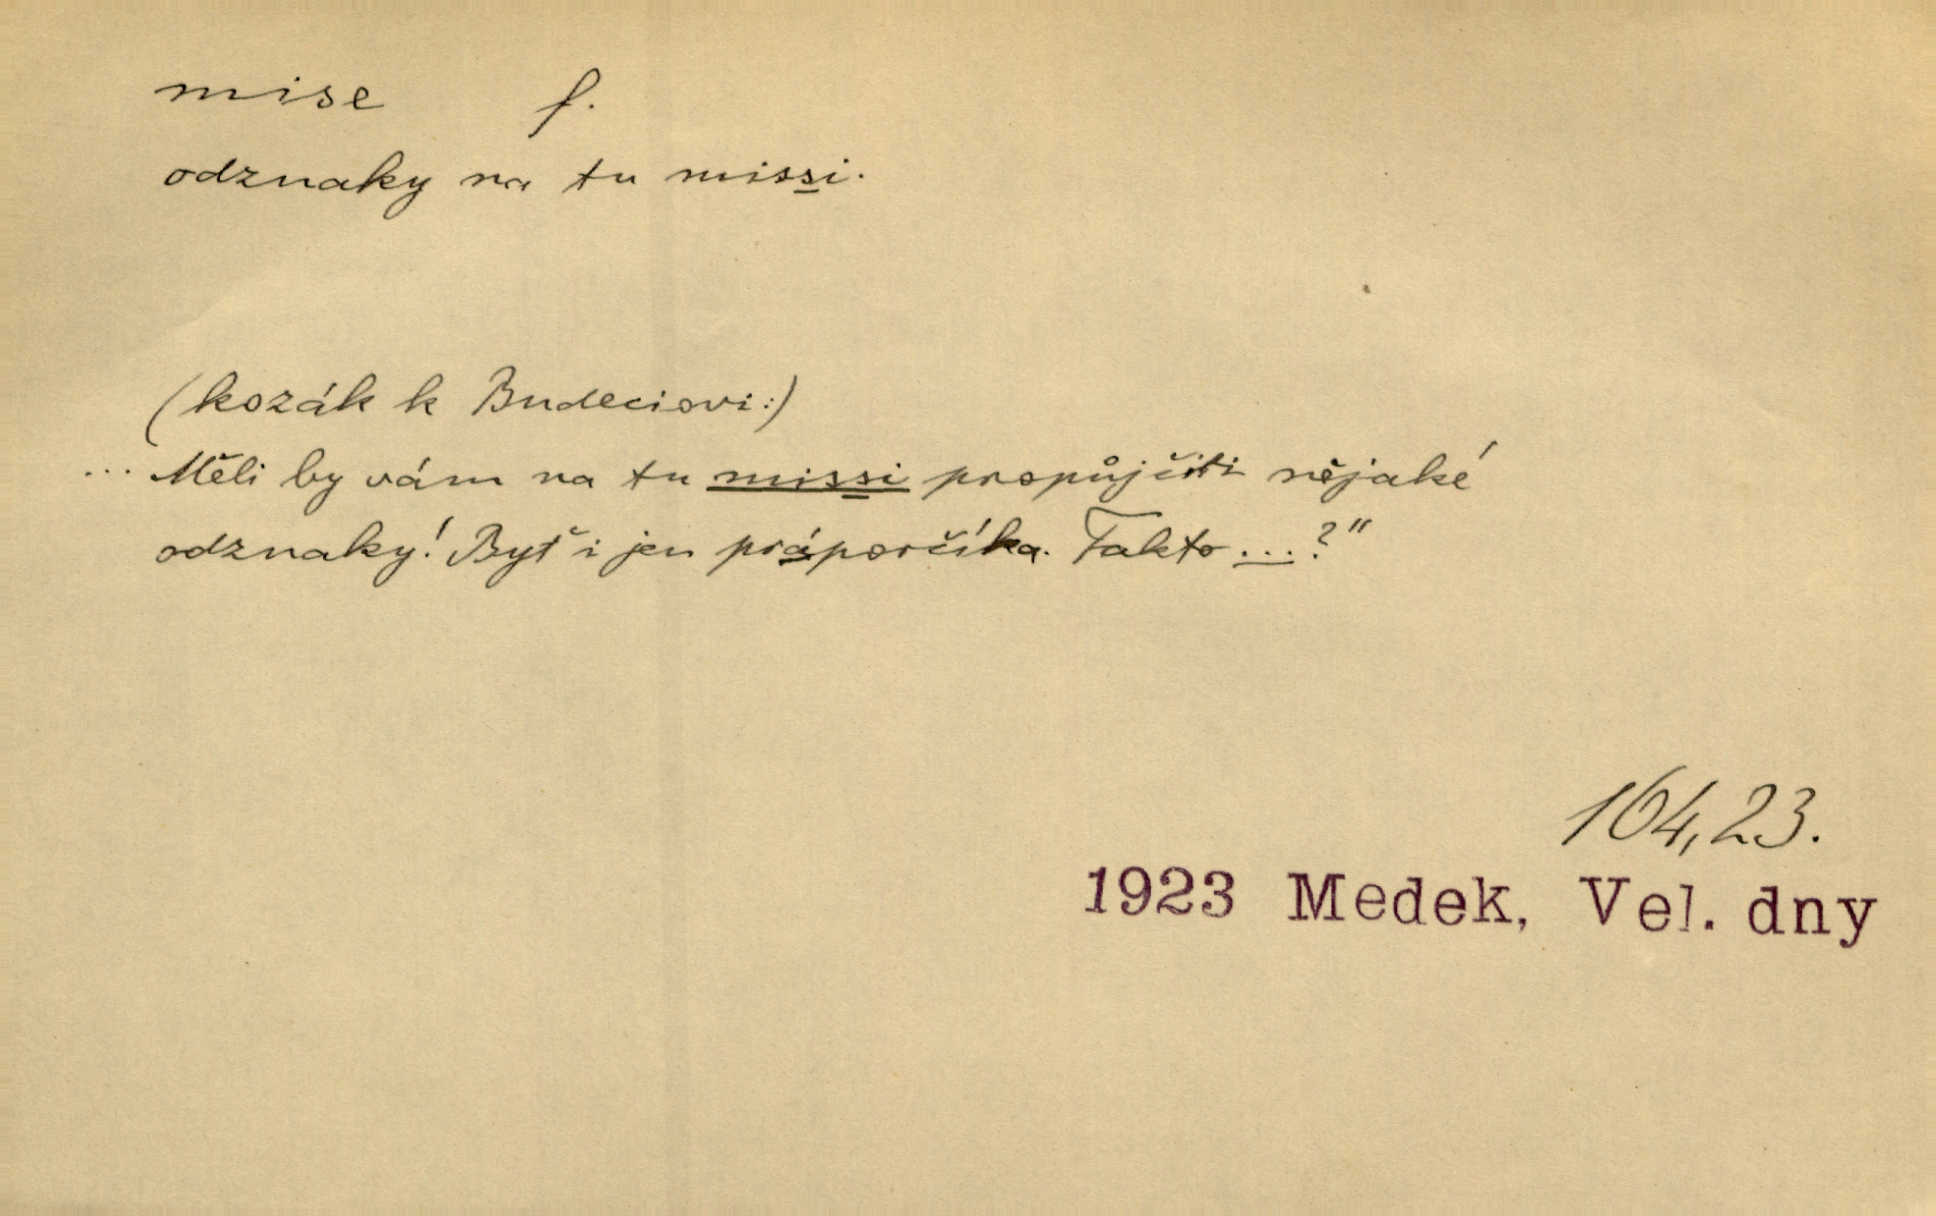 mise f.
odznaky na tu missi.
(kozák k Budeciovi:)
... Měli by vám na tu missi propůjčiti nějaké
odznaky! Byť i jen práporčíka. Takto ...?"
164,23.
1923 Medek, Vel. dny